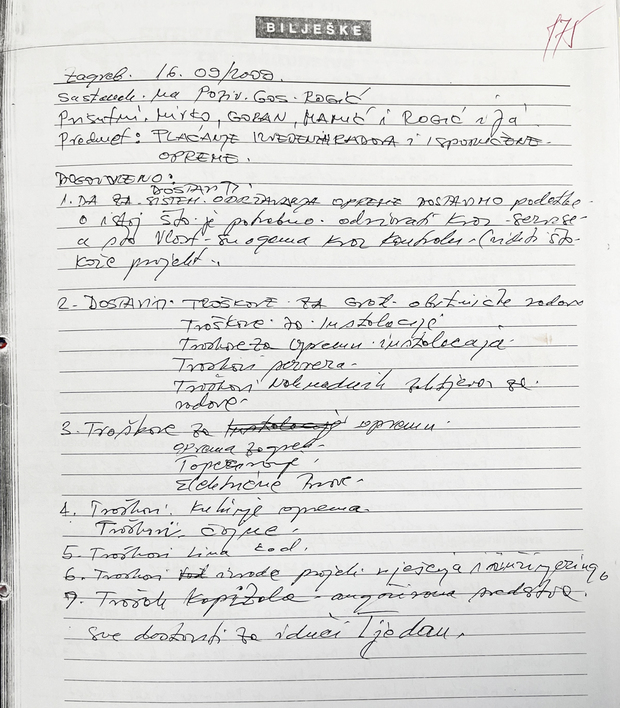 BILJEŠKE
175
Zagreb. 16. 09/2000.
Sastanak na Poziv. Gos. ROGIĆ
Prisutni. Mirko, GORAN, MAMIĆ i ROGIĆ i ja
Predmet: PLAĆANJE IZVEDENIH RADOVA i ISPORUČENE
OPREME.
DOGOVORENO:
DOSTAVITI
1. DA ZA SISTEM ODRŽAVANJA OPREME DOSTAVIMO podatke
o istoj što je potrebno odrzavati kroz servise
a sto Vlast- snagama kroz kontrolu (vidjeti što
kaže projekt.
2- DOSTAVITI TROŠKOVE ZA Građ- obrtničke radove
Troškove za Instalacije
Troskove za Opremu instalacija
Troskovi servera
Troskovi Naknadnih zahtjeva za
radove-
3. Troškove za opremu.
oprema zagreb-
Električne
4. Troskovi. Kuhinje oprema
Troškovi
5. Troskovi
6. Troskovi izrade projekt rješenja i inžinjering,
7. Trošak Kapitala - angažirana sredstva.
Sve dostaviti za idući Tjedan.